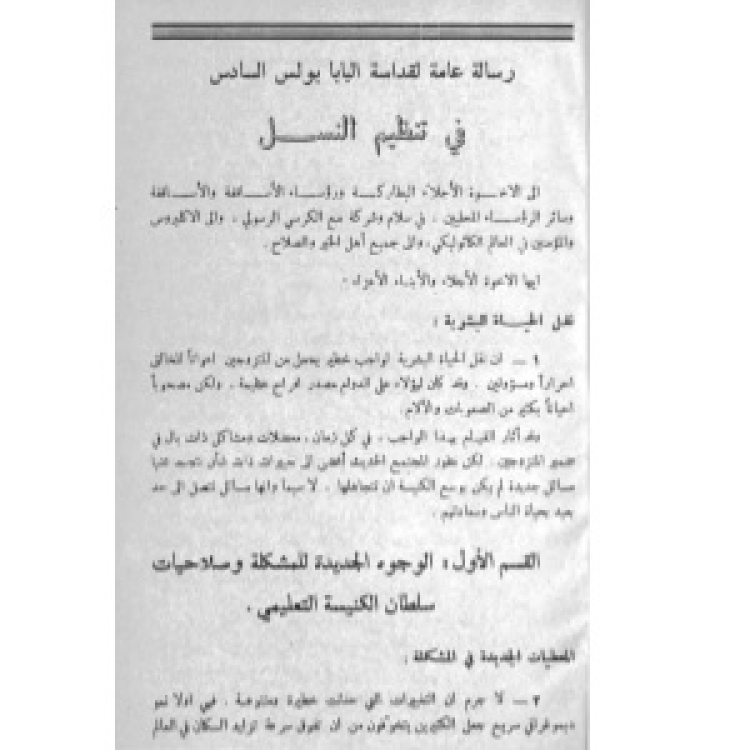 رسالة عامة لقداسة البابا بولس السادس
في تنظيم النسـل
الى الاخـوة الأجلاء البطاركـة ورؤسـاء الأسـاقفة والأسـاقفة
وسائر الرؤسـاء المحليين ، في سلام وشركة مع الكرسي الرسولي ، والى الاكليروس
والمؤمنين في العالم الكاثوليكي، والى جميع أهل الخير والصلاح .
ايها الاخوة الأجلاء والأبناء الأعزاء .
نقـل الحيـاة البشرية :
١ — ان نقل الحياة البشرية لواجب خطير يجعل من المتزوجين اعواناً للخالق
احراراً ومسؤولين . وقد كان لهؤلاء على الدوام مصدر افراح عظيمة ، ولكن مصحوباً
احياناً بكثير من الصعوبات والآلام.
وقد أثار القيـام بهـذا الواجب ، في كل زمان، معضلات ومشاكل ذات بال في
ضمير المتزوجين ، لكن تطور المجتمع الحديث أفضى الى تغيرات ذات شأن نجمت عنها
مسائل جديدة لم يكن بوسع الكنيسة ان تتجاهلها ، لا سيما وانها مسائل تتصل الى حد
بعيد بحياة الناس وسعادتهم .
القسم الأول : الوجوه الجديدة للمشكلة وصلاحيات
سلطان الكنيسة التعليمي .
المعطيات الجديدة في المشكلة :
٢ — لا جرم ان التغيرات التي حدثت خطيرة ومتنوعة . فهي اولا نمو
ديموغرافي سريع جعل الكثيرين يتخوفون من ان تفوق سرعة تزايد السكان في العالم